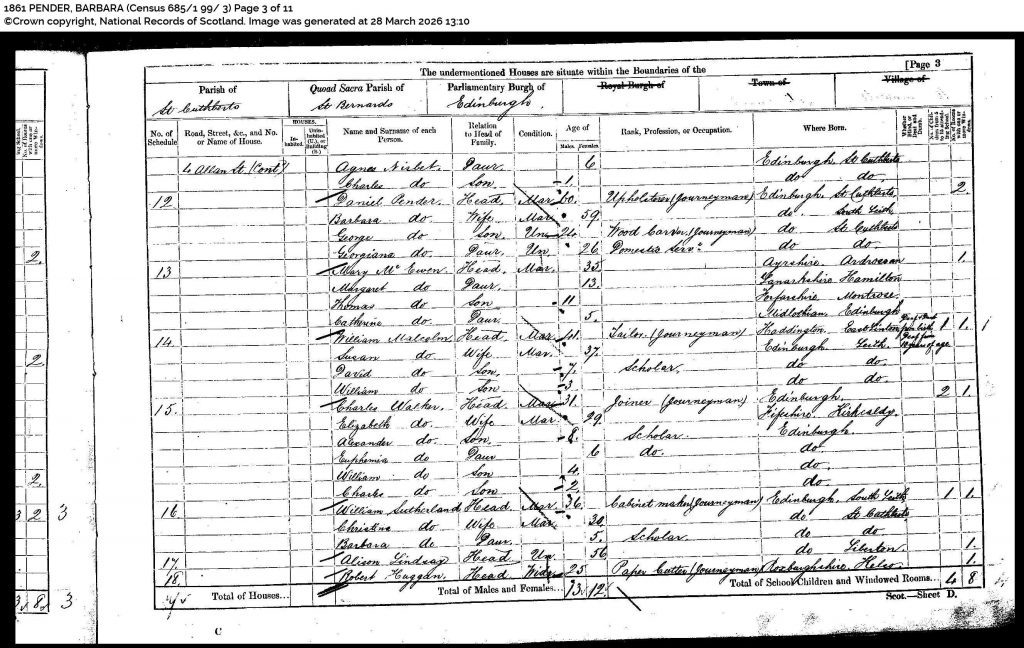 1861 PENDER, BARBARA (Census 685/1 99/ 3) Page 3 of 11
©Crown copyright, National Records of Scotland. Image was generated at 28 March 2026 13:10
[Page 3
The undermentioned Houses are situate within the Boundaries of the
Parish of Quoad Sacra Parish of Parliamentary Burgh of Royal Burgh of Town of Village of
St Cuthberts St Bernards Edinburgh.
No. of Schedule Road, Street, &c., and No. or Name of House. HOUSES. Inhabited. Uninhabited (U.), or Building (B.) Name and Surname of each Person. Relation to Head of Family. Condition. Age of Males. Females. Rank, Profession, or Occupation. Where Born.
4 Allan St. (Cont) Agnes Nisbet Daur. 6 Edinburgh St Cuthberts
Charles do Son 1. do do.
12 Daniel Pender Head Mar 60. Upholsterer (Journeyman) Edinburgh St Cuthberts 2.
Barbara do Wife Mar 59. do. South Leith
George do Son Un 24. Wood Carver (Journeyman) do St Cuthberts
Georgiana do Daur. Un. 26 Domestic Serv. do do.
13 Mary Mc Ewen Head. Mar. 35. Ayrshire Ardrossan 1.
Margaret do Daur. 13. Lanarkshire Hamilton
Thomas do Son 11 Forfarshire Montrose
Catherine do. Daur. 5. Midlothian Edinburgh
14. William Malcolm Head. Mar 40. Tailor (Journeyman) Haddington East Linton 1 1.
Susan do Wife Mar. 37. Edinburgh Leith
David do Son 7. Scholar. do do.
William do Son 3 do do.
15. Charles Walker. Head. Mar 31. Joiner (Journeyman) Edinburgh. 2 1.
Elizabeth do Wife Mar 29. Fifeshire Kirkcaldy
Alexander do. Son. 8. Scholar. Edinburgh
Euphemia do Daur 6 do. do.
William do Son 4. do.
Charles do Son 2. do.
16 William Sutherland Head Mar. 36. Cabinet maker (Journeyman) Edinburgh South Leith 1 1.
Christina do Wife Mar. 30. do St Cuthberts
Barbara do Daur. 5. Scholar. do do
17. Alison Lindsay Head Un 56 do Liberton. 1.
18. Robert Huggan. Head Widr 25 Paper Cutter (Journeyman) Roxburghshire Kelso. 1.
Total of Houses... Total of Males and Females... 13 12 Total of School Children and Windowed Rooms... 4 8
Scot.—Sheet D.
C